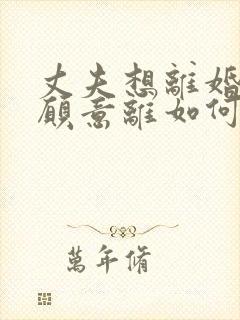 丈夫想離婚
願意離如何
萬年脩